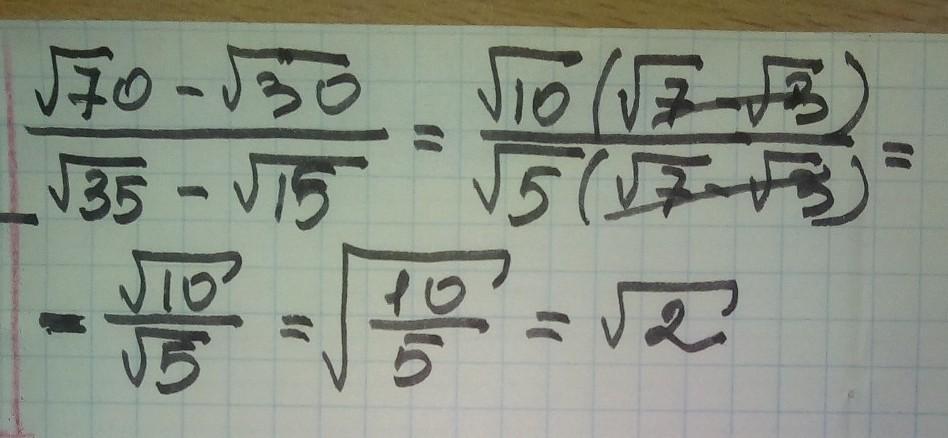 (√70 - √30)/(√35 - √15) = (√10(√7 - √3))/(√5(√7 - √3)) =
= √10/√5 = √(10/5) = √2